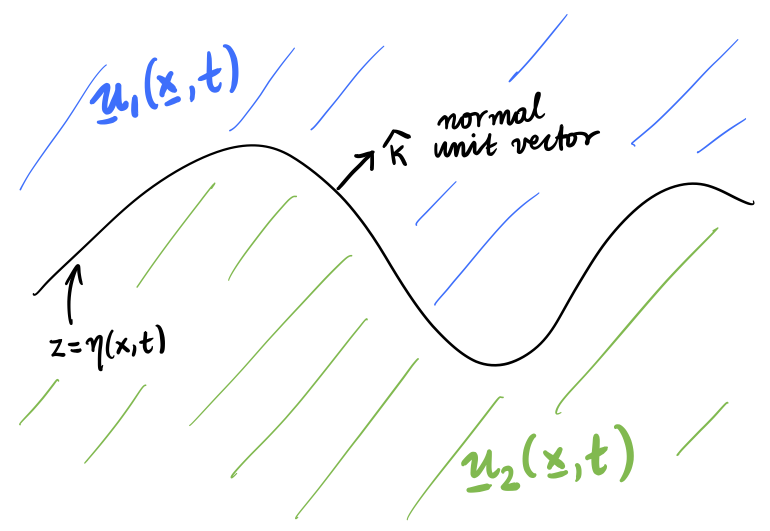 u₁(x,t)
normal
k̂ unit vector
z=η(x,t)
u₂(x,t)